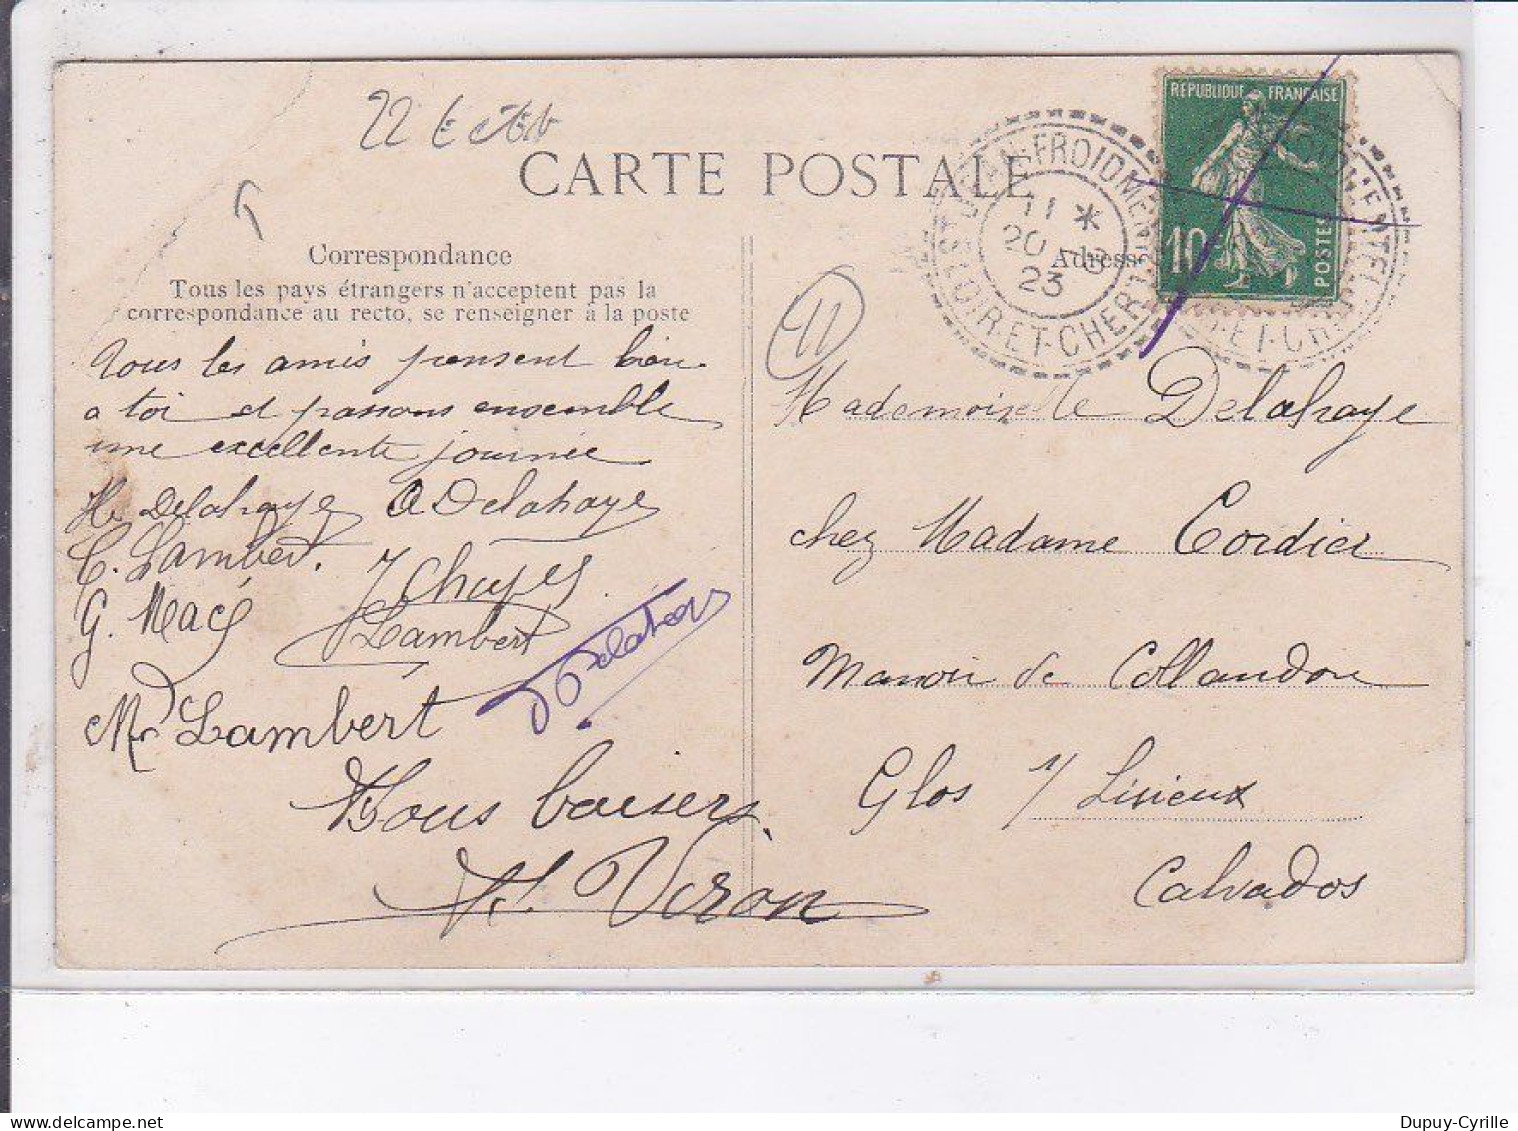 CARTE POSTALE
Correspondance
Tous les pays étrangers n'acceptent pas la
correspondance au recto, se renseigner à la poste
Adresse
RÉPUBLIQUE FRANÇAISE
10
POSTES
ST JEAN-FROIDMENTEL
11 *
20
23
LOIR-ET-CHER
11
Tous les amis pensent bien
a toi et passons ensemble
une excellente journée
H. Delahaye A Delahaye
C. Lambert.
G. Macé
Lambert
M. Lambert
Bons baisers
Véron
Mademoiselle Delahaye
chez Madame Cordier
Manoir de Collandon
Glos s/ Lisieux
Calvados
Dupuy-Cyrille